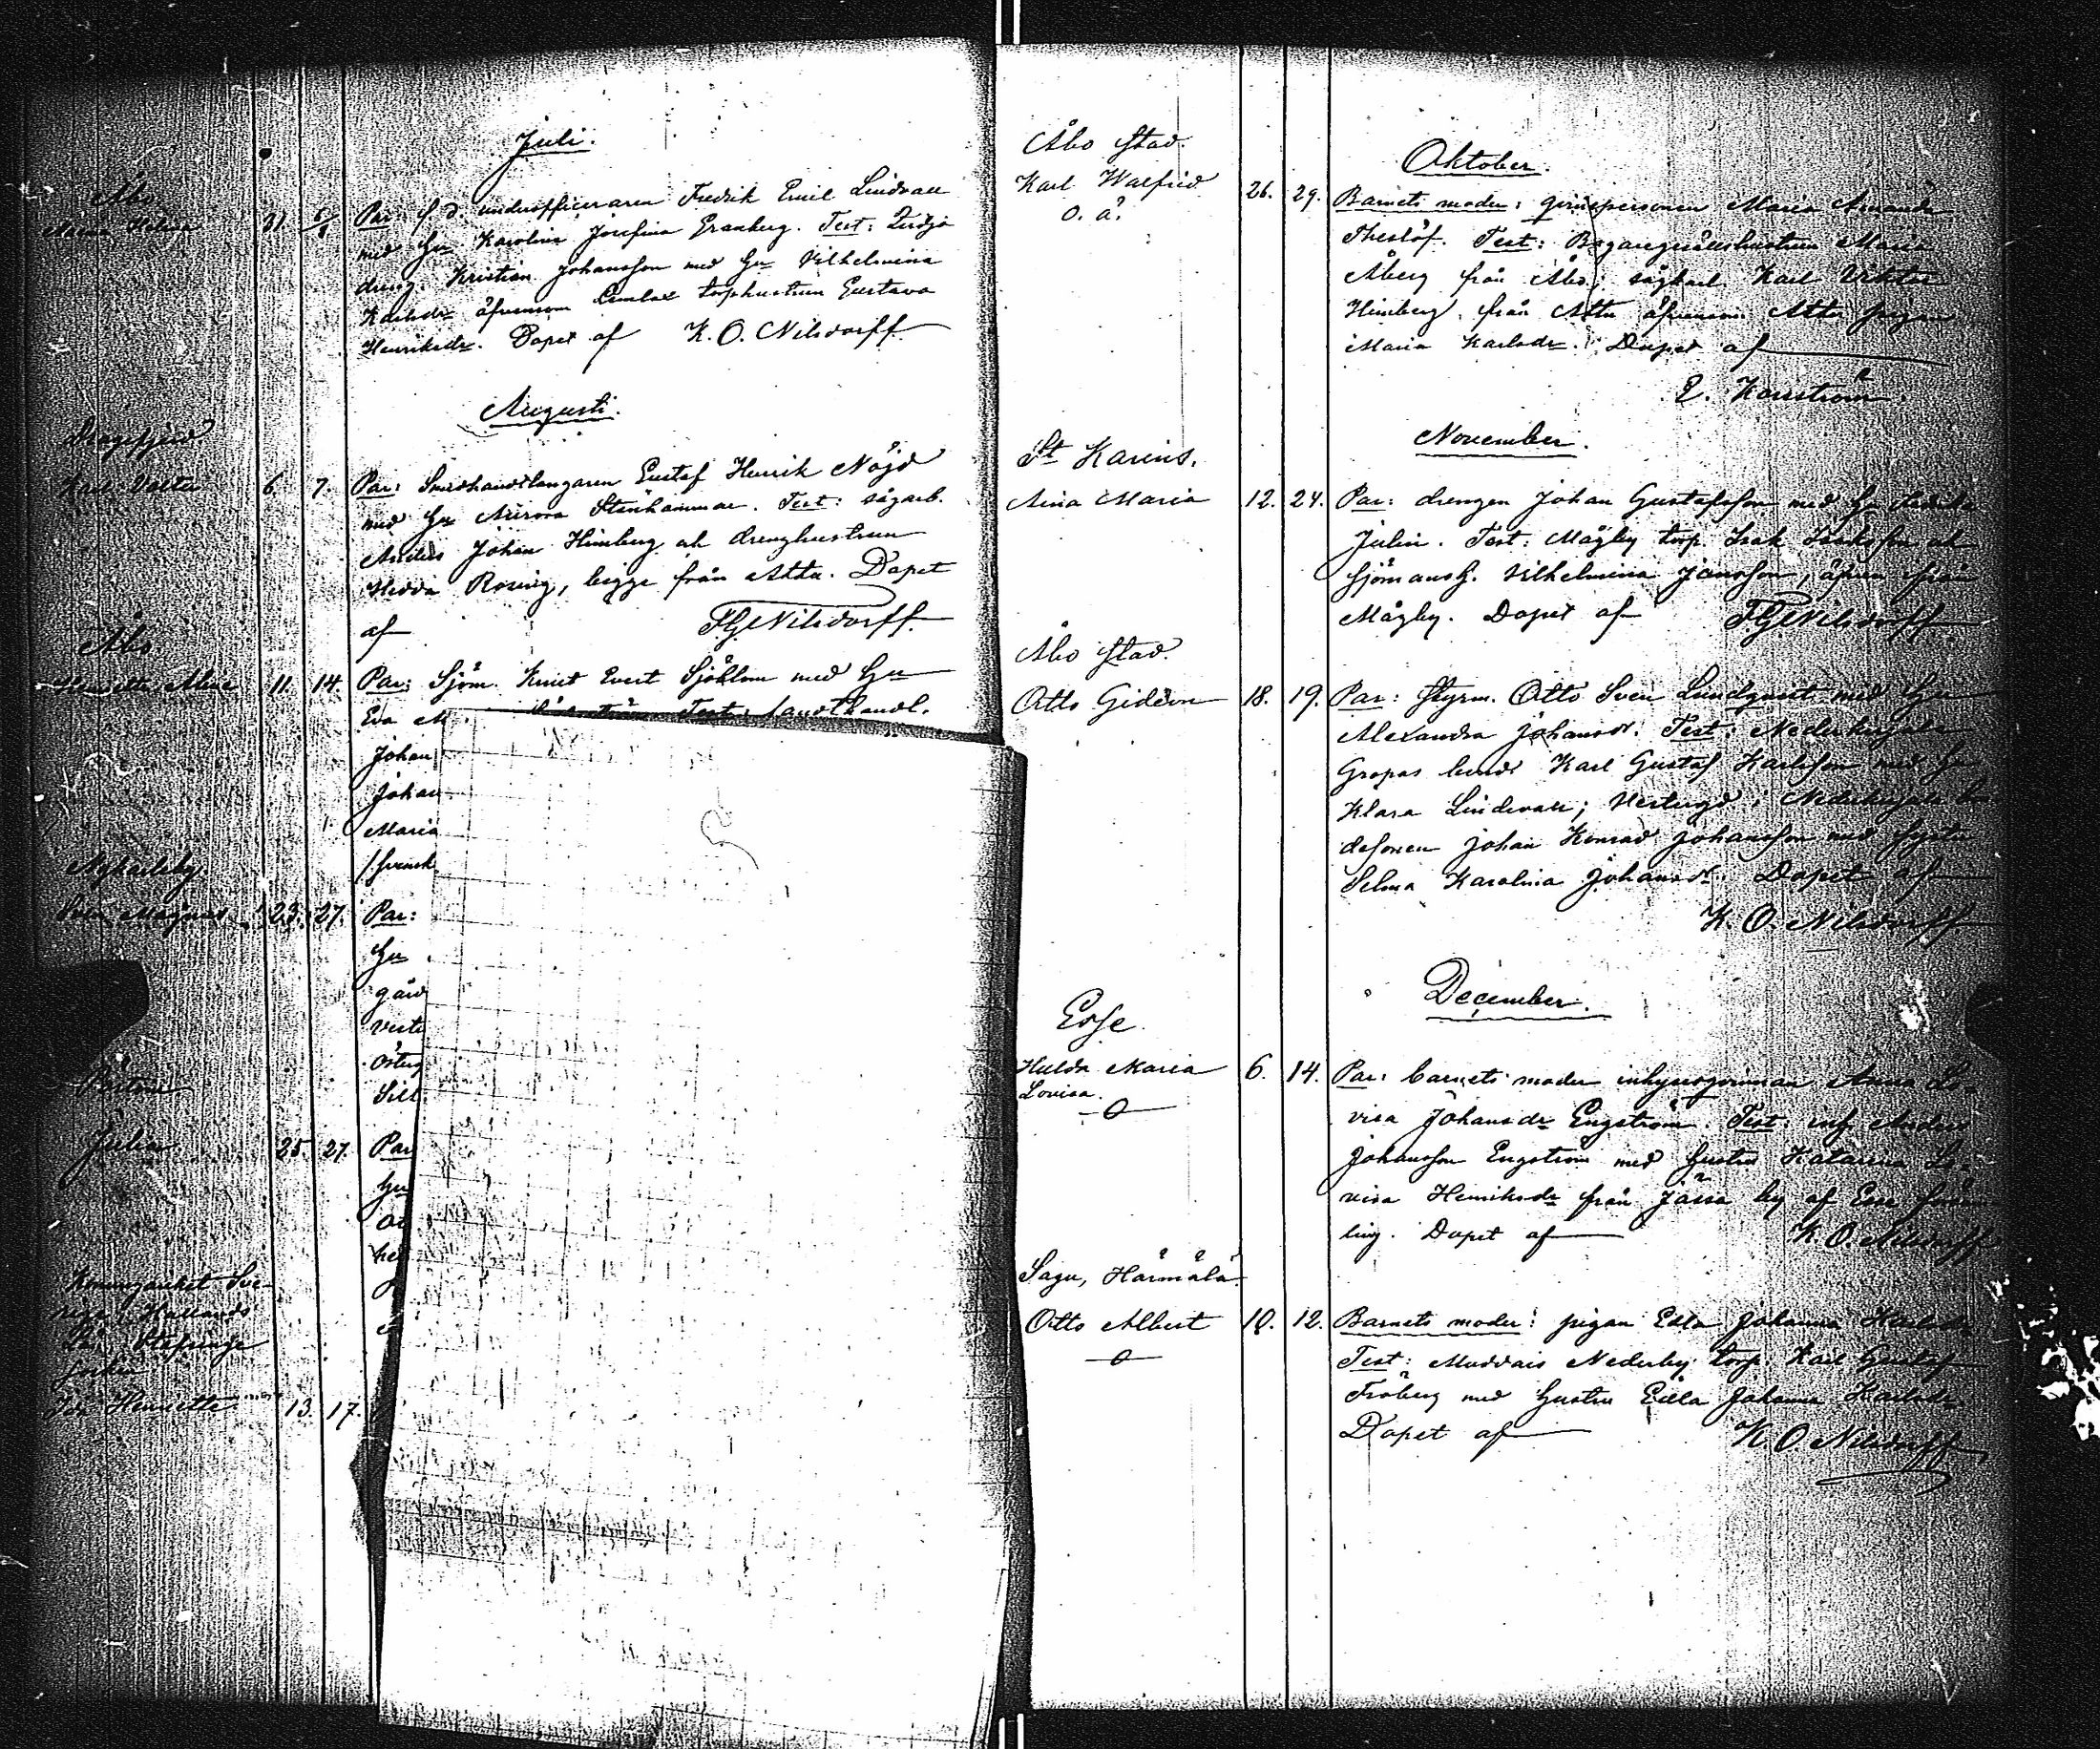 Juli.
Åbo
31. Par: f. d. underofficeraren Fredrik Emil Lindvall
med Hu Karolina Josefina Granberg. Test:
dreng. Kristian Johansson med Hu Vilhelmina
Karlsdr äfvensom Lemlax torphustrun Gustava
Henriksdr. Döpet af K. O. Nilsdorff
Augusti.
Dragsfjerd
Karl Valter 6. 7. Par: Smedhandtlangaren Gustaf Henrik Nöjd
med Hu Aurora Stenhammar. Test: sågarb.
Anders Johan Himberg och drenghustrun
Hedda Rosing, begge från Attu. Döpet
af FGNilsdorff.
Åbo
Henriette Aline 11. 14. Par: Sjöm. Knut Evert Sjöblom med Hu
Eva M. Test: landthandl.
Johan
Johan
Maria
/Svensk
Nykarleby
Sven Magnus 23. 27. Par:
Hu
gård
veste
Östeg
Sill
Julia 25. 27. Par
Hu
Konungariket Sve-
rige, Hallands
Län, Stafsinge
socken
Henriette 13. 17.
Åbo stad.
Oktober.
Karl Walfrid 26. 29. Barnets moder: qvinspersonen Maria Amanda
o. ä.
Theslöf. Test: Maria
Åberg från Åbo; sågkarl Karl Viktor
Himberg från Attu äfvensom Attu pigan
Maria Karlsdr. Döpet af
E. Karström.
November.
St Karins.
Aina Maria 12. 24. Par: drengen Johan Gustafsson med Hu Fredrika
Julin. Test: Mågby torp. Isak Isaksson och
sjömansh. Vilhelmina Jansson, äfven från
Mågby. Döpet af FGNilsdorff.
Åbo stad.
Otto Gideon 18. 19. Par: Styrm. Otto Sven Lundqvist med Hu
Alexandra Johansdr. Test: Nederkirjala
Gropas bonde Karl Gustaf Karlsson med Hu
Klara Lindevall; Vestergd i Nederkirjala bon
desonen Johan Konrad Johansson med syster
Selma Karolina Johansdr. Döpet af
K. O. Nilsdorff
December.
Esse.
Hulda Maria 6. 14. Par: barnets moder inhysesqvinnan Anna Lo-
Lovisa.
visa Johansdr Engström. Test: inh. Anders
Johansson Engström med hustru Katarina Lo-
visa Henriksdr från Jässa by af Esse försam
ling. Döpet af K. O. Nilsdorff
Sagu, Härmälä.
Otto Albert 10. 12. Barnets moder: pigan Edla Johanna Karlsdr
Test: Muddais Nederby torp. Karl Gustaf
Fröberg med hustru Edla Johanna Karlsdr.
Döpet af K O Nilsdorff